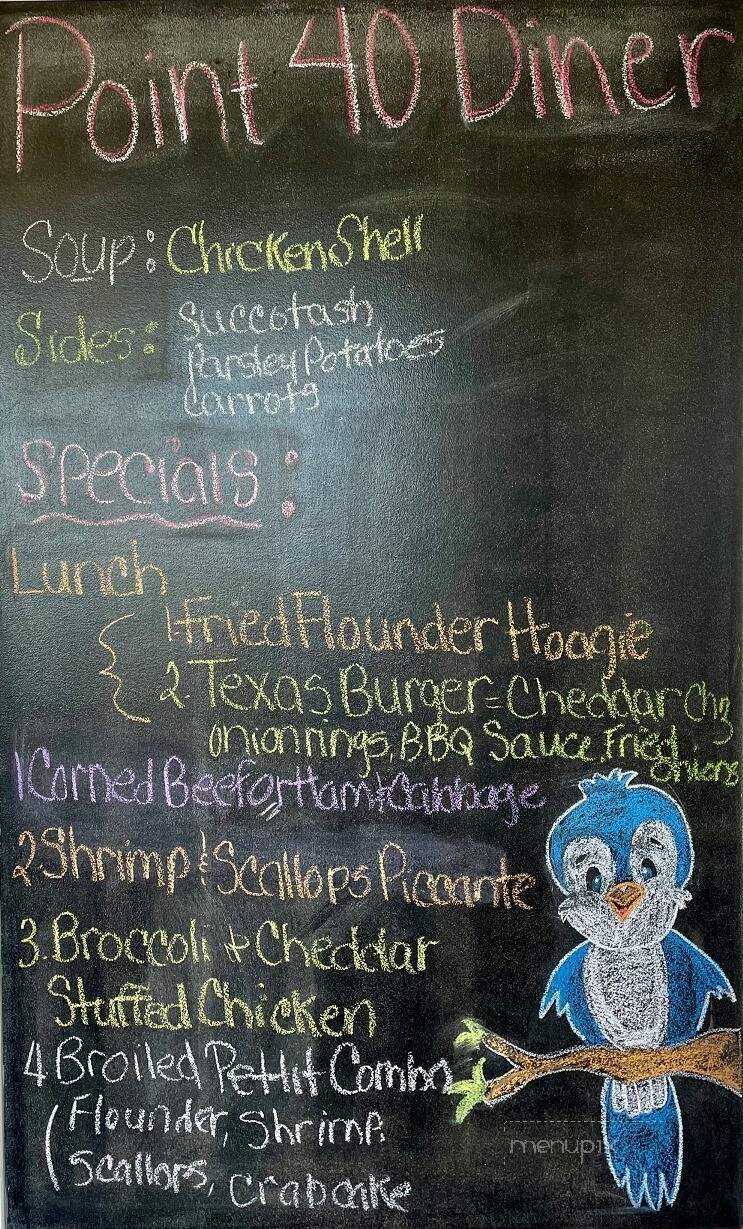 Point 40 Diner
Soup: Chicken Shell
Sides: Succotash
Parsley Potatoes
Carrots
Specials:
Lunch
1. Fried Flounder Hoagie
2. Texas Burger = Cheddar Chz
Onion rings, BBQ Sauce, Fried
onions
1 Corned Beef or Ham & Cabbage
2 Shrimp & Scallops Piccante
3. Broccoli & Cheddar
Stuffed Chicken
4 Broiled Pettit Combo
(Flounder, Shrimp,
Scallops, Crabcake
menupix